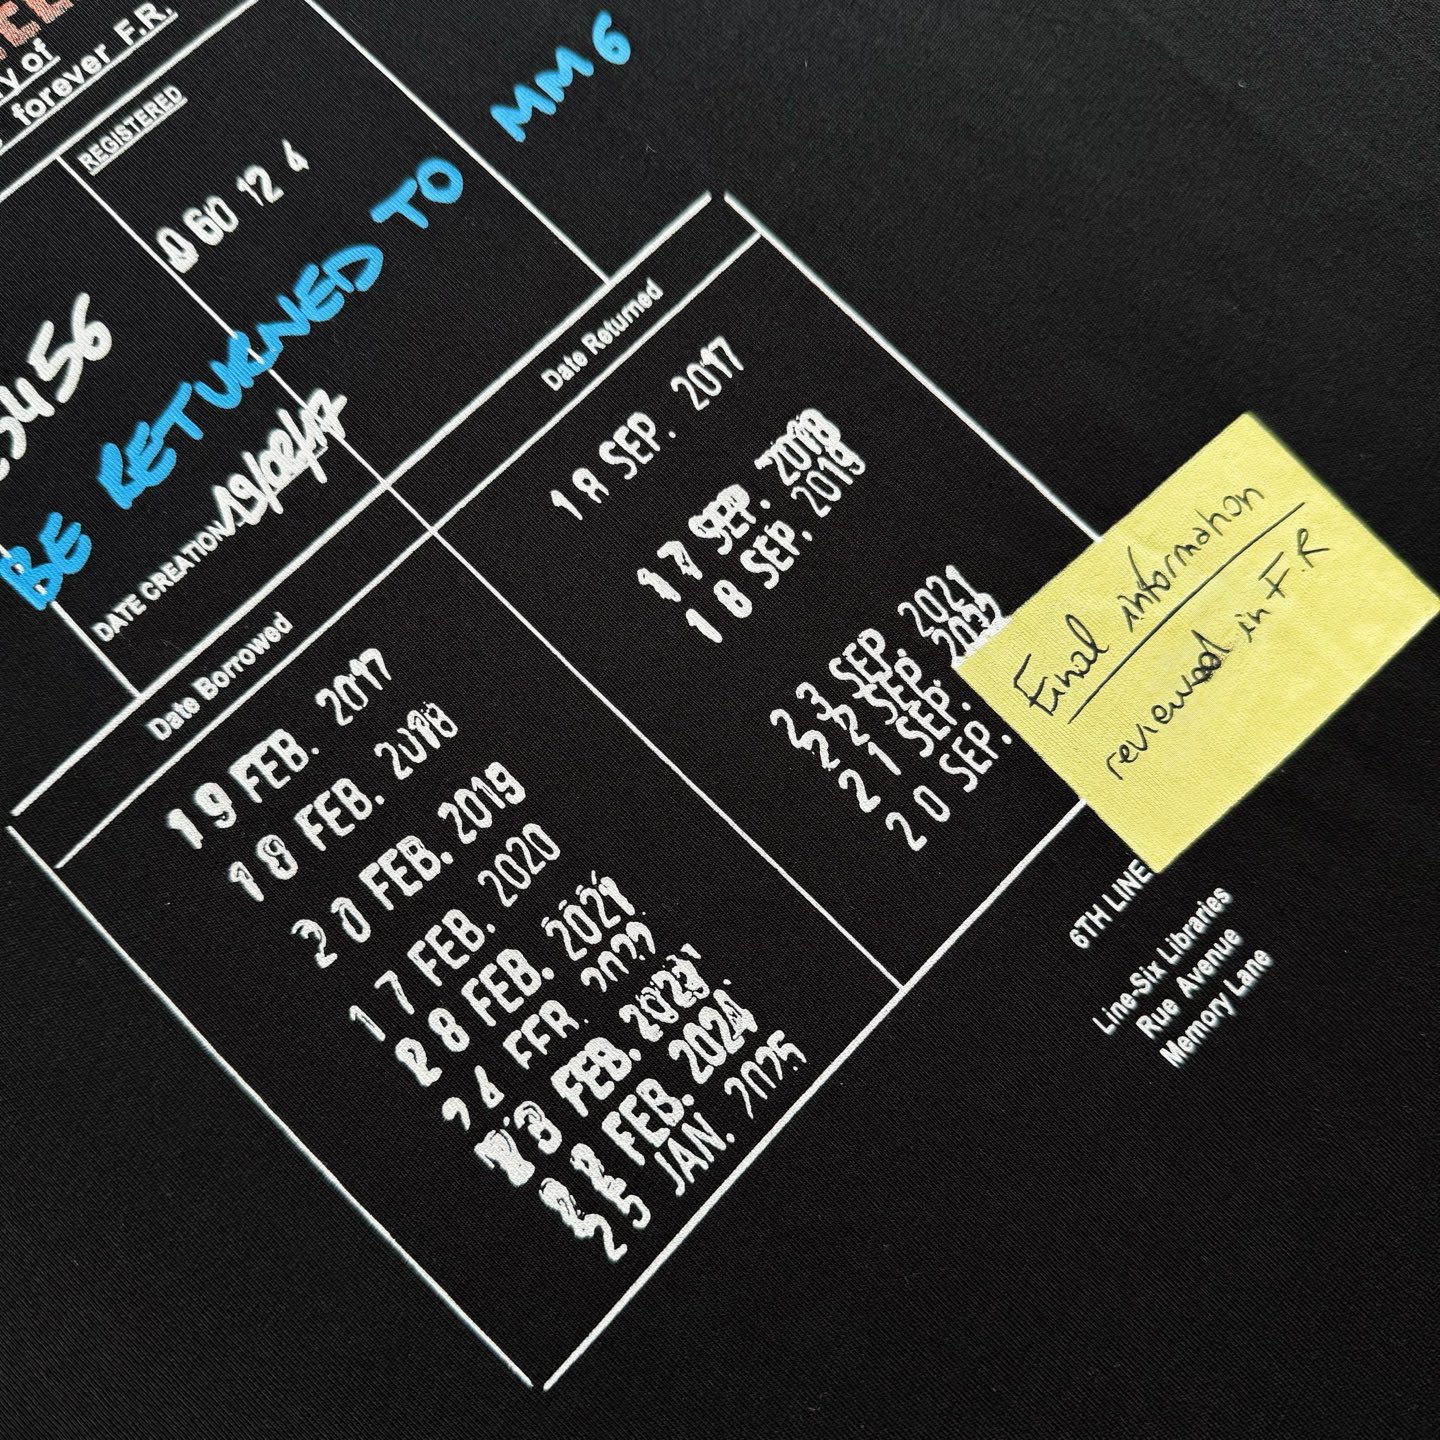 ry of
forever F.R.
REGISTERED
060 12 4
3456
BE RETURNED TO MM6
DATE CREATION 19/02/17
Date Borrowed
Date Returned
19 FEB. 2017
18 FEB. 2018
20 FEB. 2019
17 FEB. 2020
FEB. 2021
FEB. 2022
FEB. 2023
22 FEB. 2024
25 JAN. 2025
18 SEP. 2017
17 SEP. 2018
18 SEP. 2019
23 SEP. 2021
22 SEP. 2022
21 SEP.
20 SEP.
Final information
reviewed in F.R
6TH LINE
Line-Six Libraries
Rue Avenue
Memory Lane